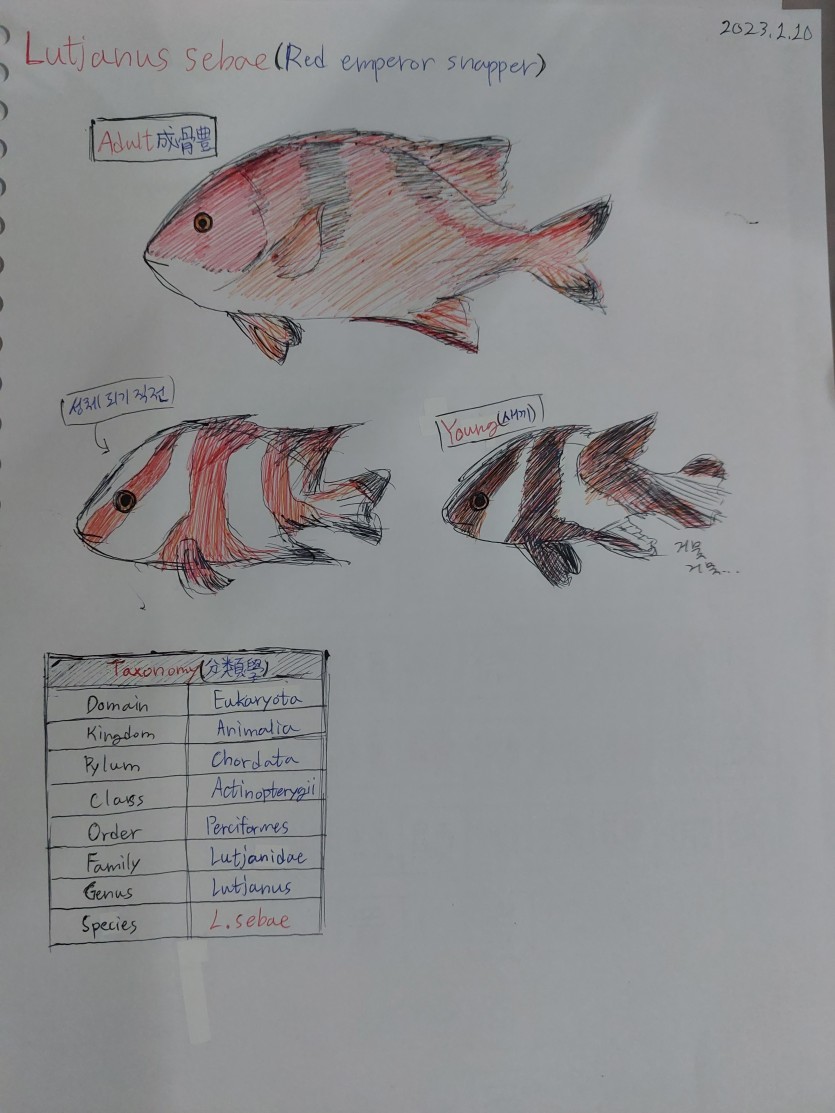 2023.1.20
Lutjanus sebae (Red emperor snapper)
Adult 成骨豊
성체 되기 직전
Young (새끼)
거뭇
거뭇...
Taxonomy (分類學)
Domain Eukaryota
Kingdom Animalia
Pylum Chordata
Class Actinopterygii
Order Perciformes
Family Lutjanidae
Genus Lutjanus
Species L. sebae